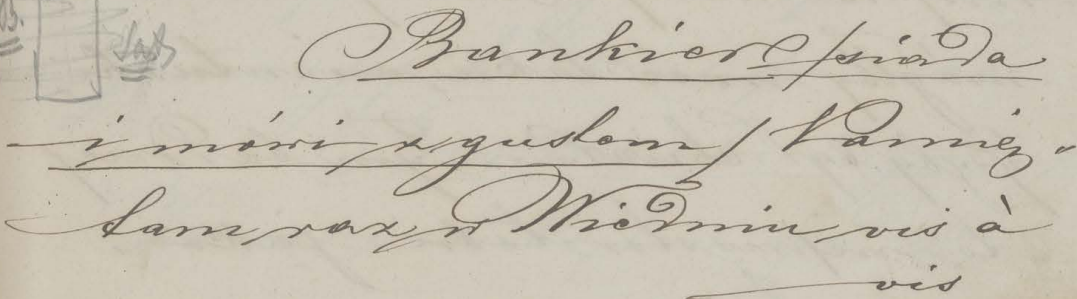 Bankier /siada
i mówi z gustem/ Pamię-
tam raz w Wiedniu vis à
vis